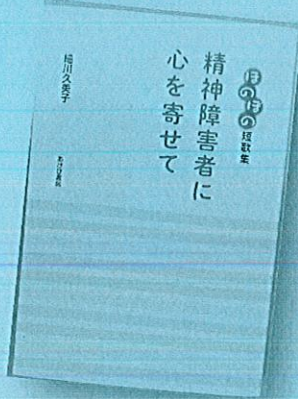 ほのぼの短歌集
精神障害者に
心を寄せて
細川久美子
あけび書房